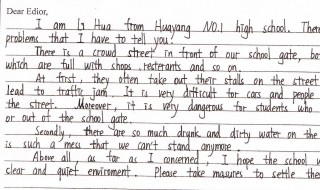 Dear Edior,
I am Li Hua from Huayang NO.1 high school. Ther
problems that I have to tell you?
There is a crowd street in front of our school gate, bo
which are full with shops, resterants and so on.
At first, they often take out their stalls on the street
lead to traffic jam. It is very difficult for cars and people
the street. Moreover, it is very dangerous for students who
or out of the school gate.
Secondly, there are so much drunk and dirty water on the
is such a mess that we can't stand anymore
Above all, as far as I concerned, I hope the school w
clear and quiet enviroment. Please take masures to settle the